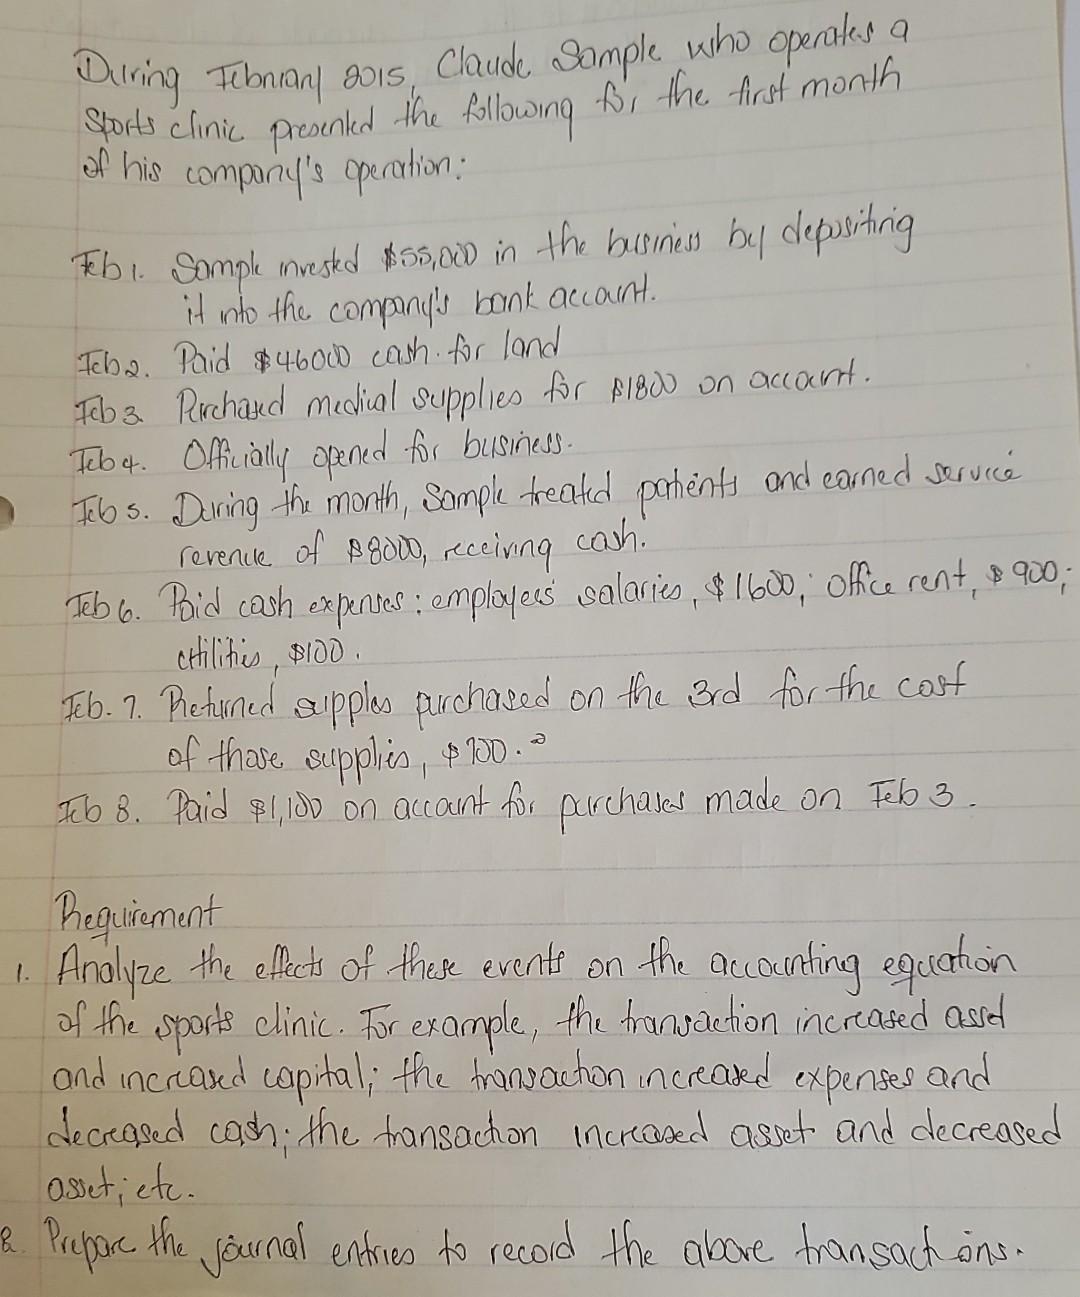 During February 2015, Claude Sample who operates a
Sports clinic presented the following for the first month
of his company's operation:
Feb 1. Sample invested $55,000 in the business by depositing
it into the company's bank account.
Feb 2. Paid $46000 cash. for land
Feb 3 Purchased medical supplies for $1800 on account.
Feb 4. Officially opened for business.
Feb 5. During the month, Sample treated patients and earned service
revenue of $8000, receiving cash.
Feb 6. Paid cash expenses: employees' salaries, $1600; office rent, $900;
utilities, $100.
Feb. 7. Returned supplies purchased on the 3rd for the cost
of those supplies, $700.
Feb 8. Paid $1,100 on account for purchases made on Feb 3.
Requirement
1. Analyze the effects of these events on the accounting equation
of the sports clinic. For example, the transaction increased asset
and increased capital; the transaction increased expenses and
decreased cash; the transaction increased asset and decreased
asset; etc.
2. Prepare the journal entries to record the above transactions.